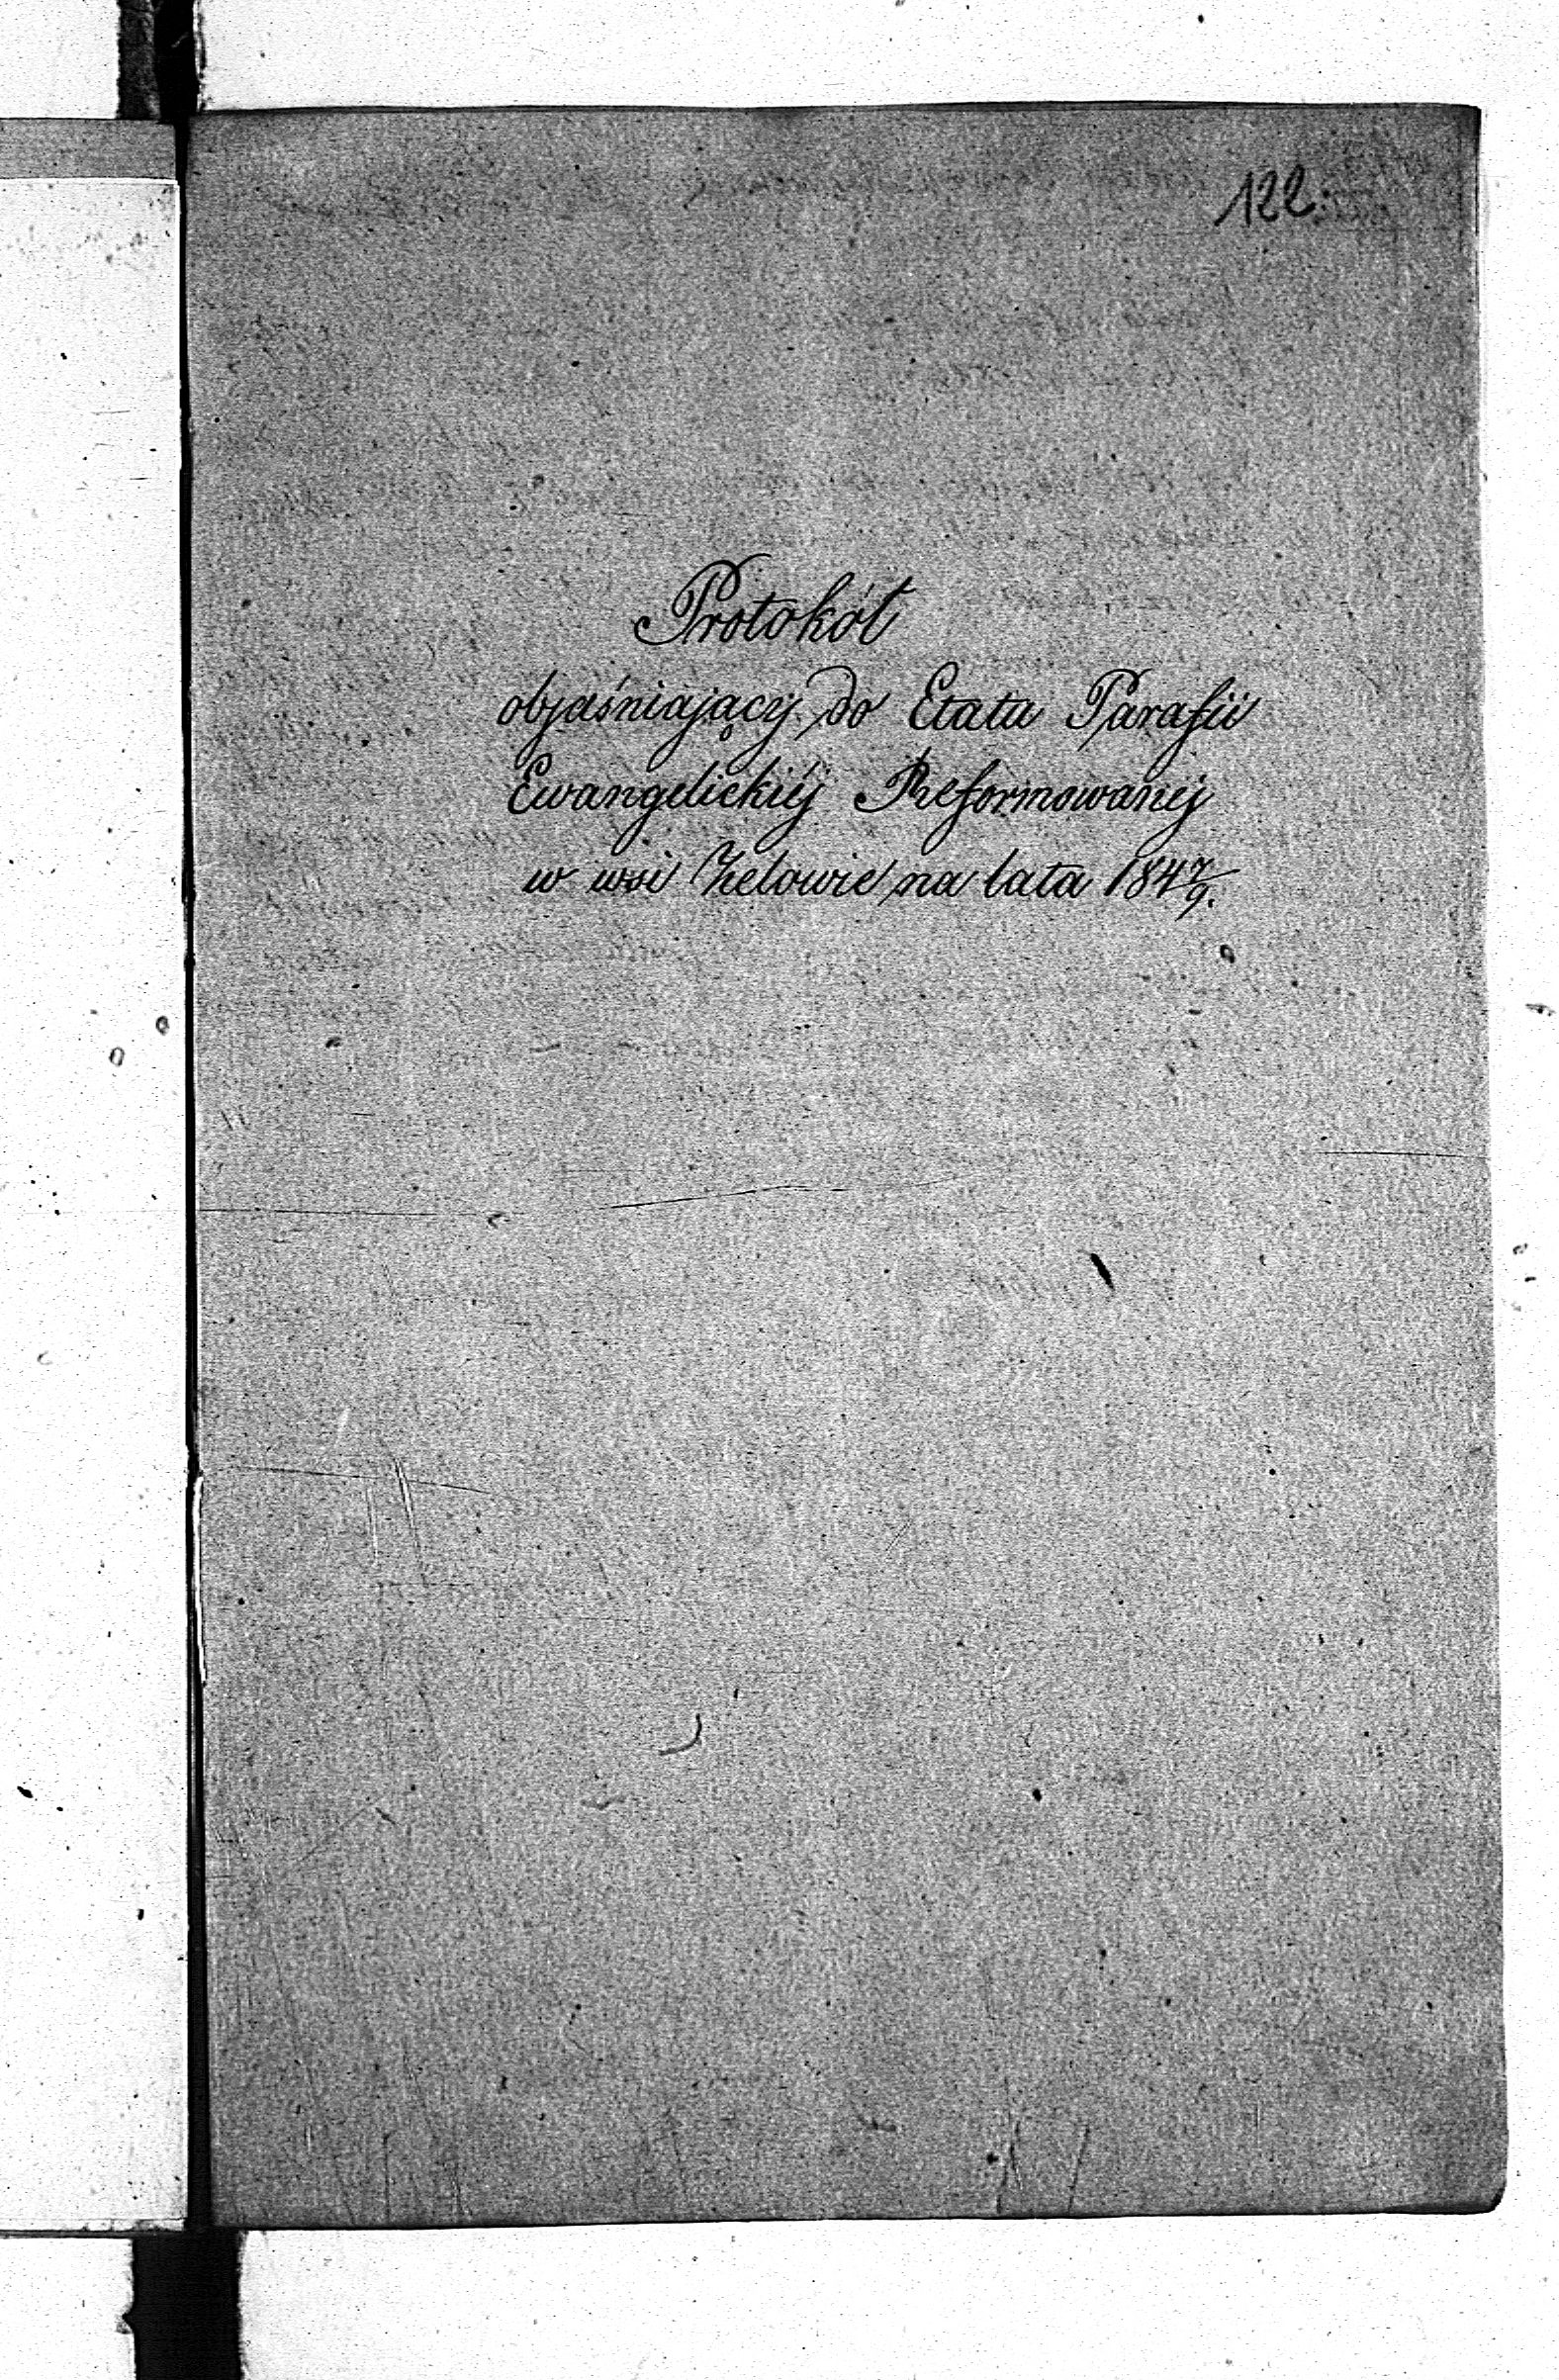 122.
Protokół
objaśniający do Etatu Parafii
Ewangelickiéj Reformowanéj
w wsi Zelowie na lata 184 7/9.